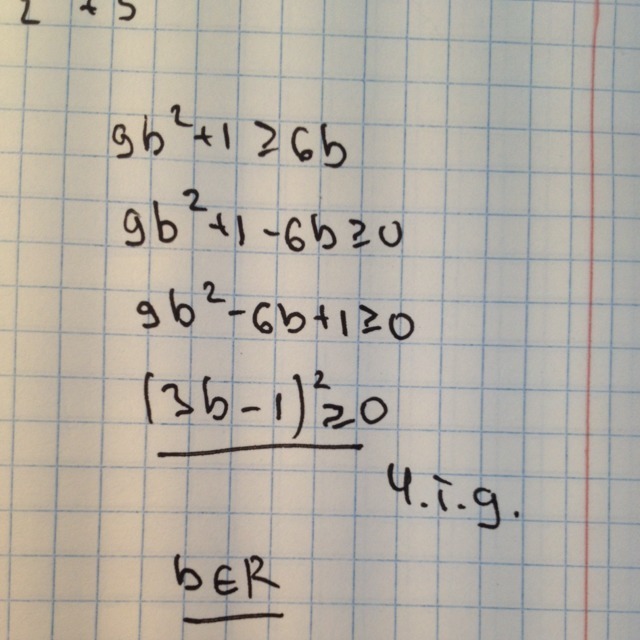 9b²+1≥6b
9b²+1-6b≥0
9b²-6b+1≥0
(3b-1)²≥0
ч.т.д.
b∈R